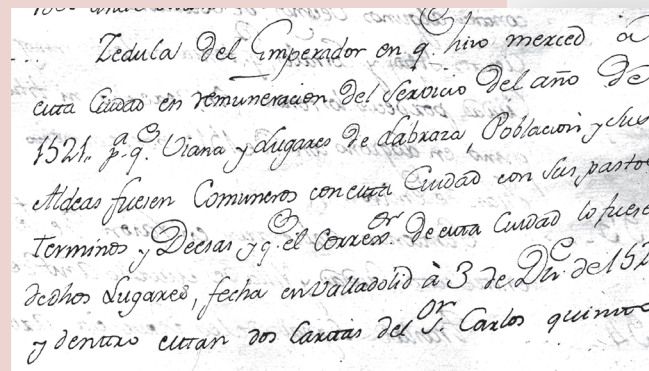 Zedula del Emperador en q hizo merced a
esta Ciudad en remuneracion del servicio del año de
1521. pa. qe. Viana y Lugares de Labraza, Poblacion y sus
Aldeas fuesen Comuneros con esta Ciudad con sus pasto
Terminos y Deesas y qe. el Correxor. de esta Ciudad lo fuese
de dhos Lugares, fecha en Valladolid à 3 de Dre. de 152
y dentro estan dos Cartas del Sor. Carlos quinto